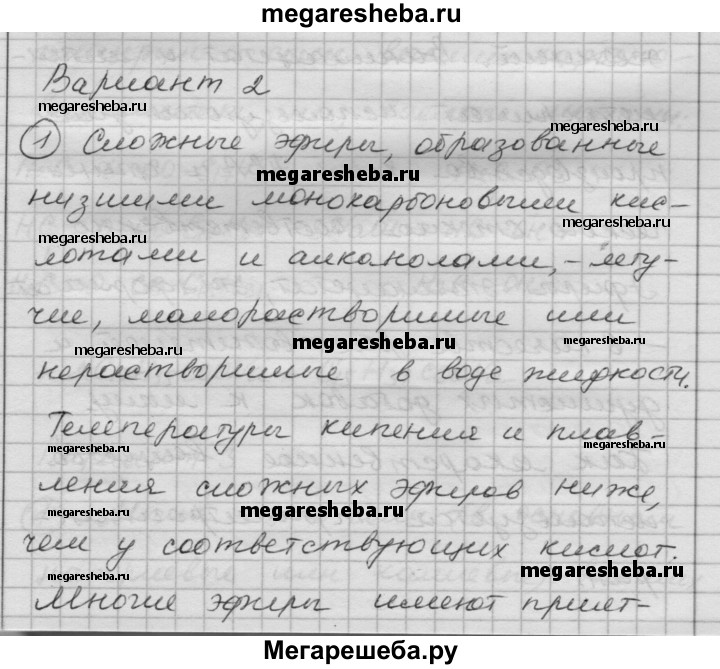 megaresheba.ru
Вариант 2
megaresheba.ru
megaresheba.ru
1 Сложные эфиры, образованные
megaresheba.ru
низшими монокарбоновыми кис-
megaresheba.ru
megaresheba.ru
лотами и алканолами, - лету-
чие, малорастворимые или
megaresheba.ru
megaresheba.ru
megaresheba.ru
нерастворимые в воде жидкости.
Температуры кипения и плав-
megaresheba.ru
megaresheba.ru
ления сложных эфиров ниже,
megaresheba.ru
megaresheba.ru
megaresheba.ru
чем у соответствующих кислот.
megaresheba.ru
megaresheba.ru
Многие эфиры имеют прият-
Мегарешеба.ру